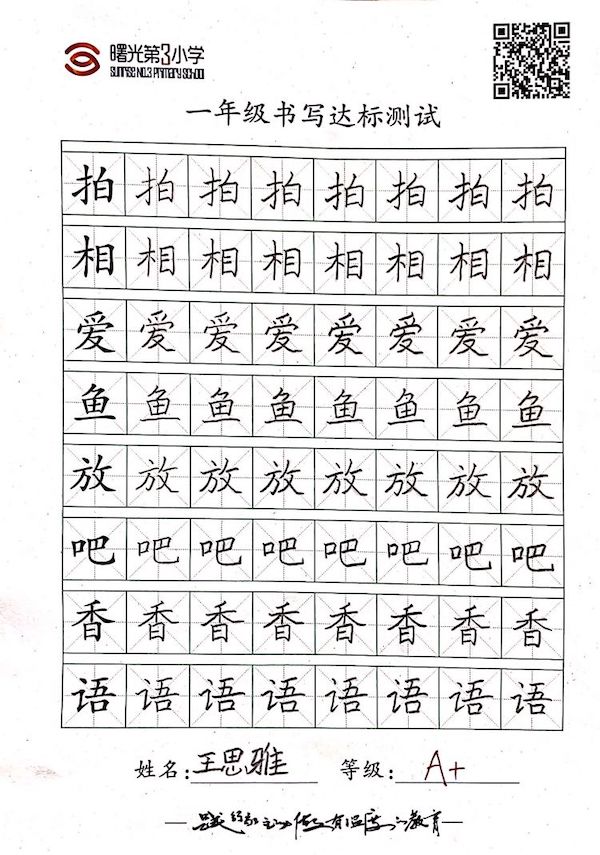 曙光第3小学
SUNRISE NO.3 PRIMARY SCHOOL
一年级书写达标测试
拍 拍 拍 拍 拍 拍 拍 拍
相 相 相 相 相 相 相 相
爱 爱 爱 爱 爱 爱 爱 爱
鱼 鱼 鱼 鱼 鱼 鱼 鱼 鱼
放 放 放 放 放 放 放 放
吧 吧 吧 吧 吧 吧 吧 吧
香 香 香 香 香 香 香 香
语 语 语 语 语 语 语 语
姓名:王思雅 等级:A+
做有温度的教育